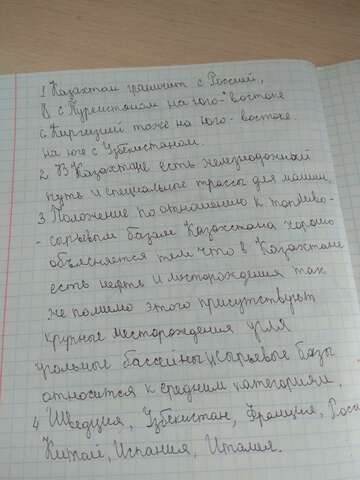 1 Казахтан граничит с Россией,
с Туркистаном на юго-востоке
с Киргизией тоже на юго-востоке.
на юге с Узбекистаном.
2 В Казахтане есть железнодожный
путь и специальные трассы для машин.
3. Положение по отношению к топливо-
- сырьевым базам Казахстана хорошо
объясняется тем что в Казахстане
есть нефтя и месторождения так
же помимо этого присутствуют
крупные месторождения угля
угольные бассейны, сырьевые базы
относится к средним категориям.
4 Швеция, Узбекистан, Франция, Росс
Китай, Испания, Италия.